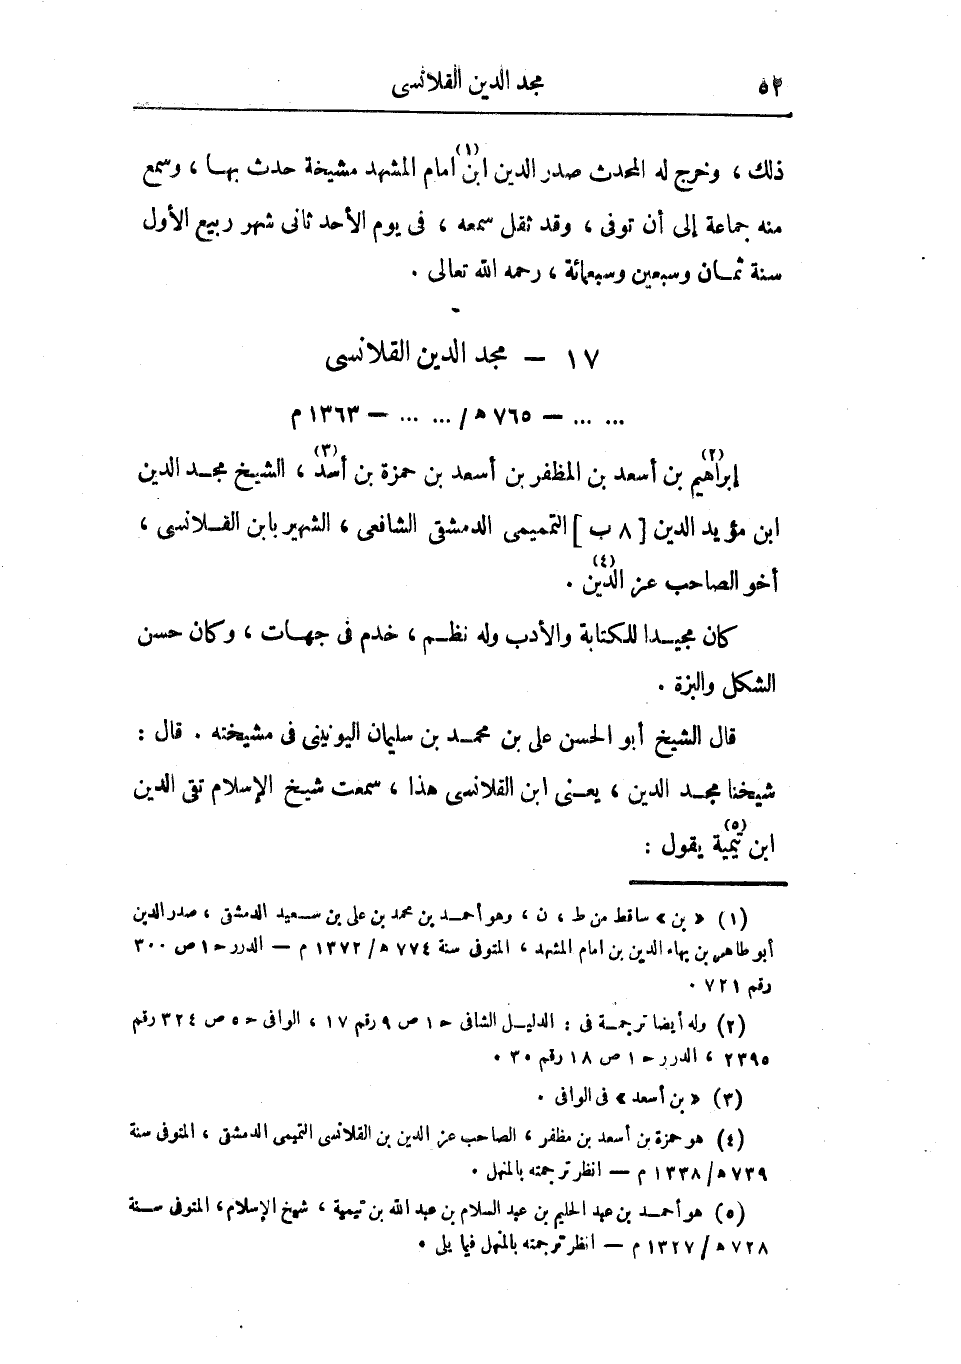 ٥٢
مجد الدين القلانسى
ذلك ، وخرج له المحدث صدر الدين ابن(١) امام المشهد مشيخة حدث بهـا ، وسمع
منه جماعة إلى أن توفى ، وقد ثقل سمعه ، فى يوم الأحد ثانى شهر ربيع الأول
سنة ثمـان وسبعين وسبعمائة ، رحمه الله تعالى .
١٧ — مجد الدين القلانسى
... ... — ٧٦٥ هـ / ... ... — ١٣٦٣ م
إبراهيم(٢) بن أسعد بن المظفر بن أسعد بن حمزة بن أسد(٣) ، الشيخ مجـد الدين
ابن مؤيد الدين [ ٨ ب ] التميمى الدمشقى الشافعى ، الشهير بابن القـلانسى ،
أخو الصاحب عز الدين(٤) .
كان مجيـدا للكتابة والأدب وله نظـم ، خدم فى جهـات ، وكان حسن
الشكل والبزة .
قال الشيخ أبو الحسن على بن محمـد بن سليمان اليونينى فى مشيخته . قال :
شيخنا مجـد الدين ، يعـنى ابن القلانسى هذا ، سمعت شيخ الإسلام تقى الدين
ابن تيمية(٥) يقول :
(١) « بن » ساقط من ط ، ن ، وهو أحمـد بن محمد بن على بن سـعيد الدمشقى ، صدر الدين
أبو طاهر بن بهاء الدين بن امام المشهد ، المتوفى سنة ٧٧٤ هـ / ١٣٧٢ م — الدرر حـ ١ ص ٣٠٠
رقم ٧٢١ .
(٢) وله أيضا ترجمـة فى : الدليـل الشافى حـ ١ ص ٩ رقم ١٧ ، الوافى حـ ٥ ص ٣٢٤ رقم
٢٣٩٥ ، الدرر حـ ١ ص ١٨ رقم ٣٠ .
(٣) « بن أسعد » فى الوافى .
(٤) هو حمزة بن أسعد بن مظفر ، الصاحب عز الدين بن القلانسى التميمى الدمشقى ، المتوفى سنة
٧٣٩ هـ / ١٣٣٨ م — انظر ترجمته بالمنهل .
(٥) هو أحمـد بن عبد الحليم بن عبد السلام بن عبد الله بن تيمية ، شيخ الإسلام ، المتوفى سـنة
٧٢٨ هـ / ١٣٢٧ م — انظر ترجمته بالمنهل فيما يلى .